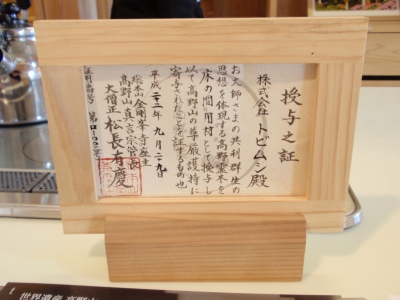 授与之証
株式会社 トビムシ殿
お大師さまの共利群生の
思想を体現する高野霊木を
床の間用材として授与し
以て高野山の尊厳護持に
寄与されたことを証するもの也
平成二十二年 九月二十九日
総本山金剛峯寺座主
高野山真言宗管長
大僧正 松長有慶
世界遺産 高野山